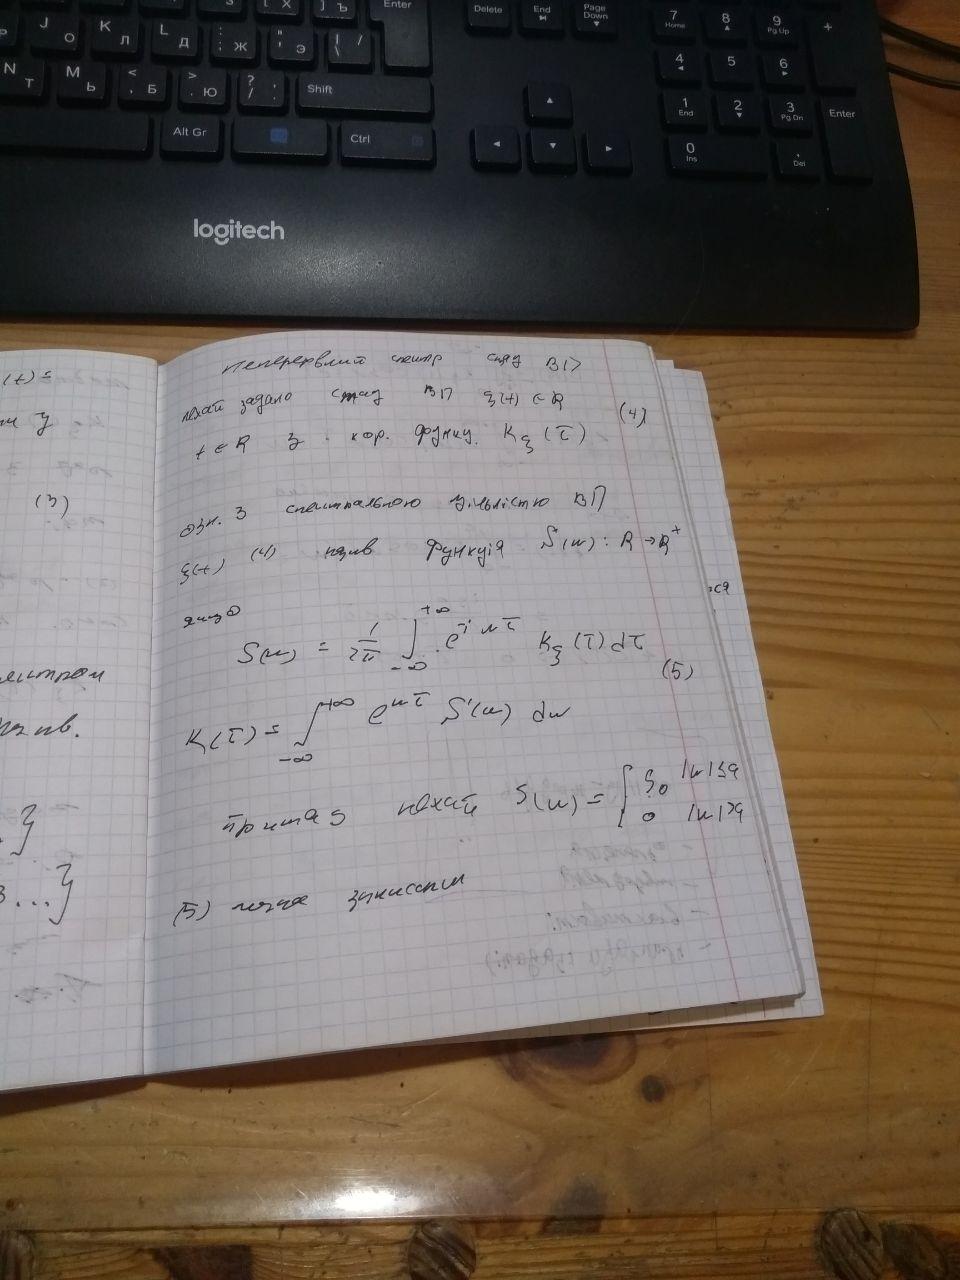 Enter
Delete
End
Page Down
7 Home
8
9 Pg Up
+
J О
K Л
L Д
: ; Ж
" ' Э
| \ /
4
5
6
N Т
M Ь
< , Б
> . Ю
? / .
Shift
1 End
2
3 Pg Dn
Enter
Alt Gr
Ctrl
0 Ins
. Del
logitech
Неперервний спектр стац ВП
Нехай задано стац ВП ξ(t) ∈ R (4)
t ∈ R з кор. функц. K_ξ(τ)
Озн. 3 спектральною щільністю ВП
ξ(t) (4) назив функція S(w): R → R⁺
якщо
S(w) = 1/2π ∫_{-∞}^{+∞} e^{-i w τ} K_ξ(τ) dτ
(5)
K(τ) = ∫_{-∞}^{+∞} e^{wτ} S(w) dw
нехай S(w) = { ξ₀ |w|≤a
0 |w|>a
(5) може записати
(t)=
(3)
назив.
...}
3...}
ся